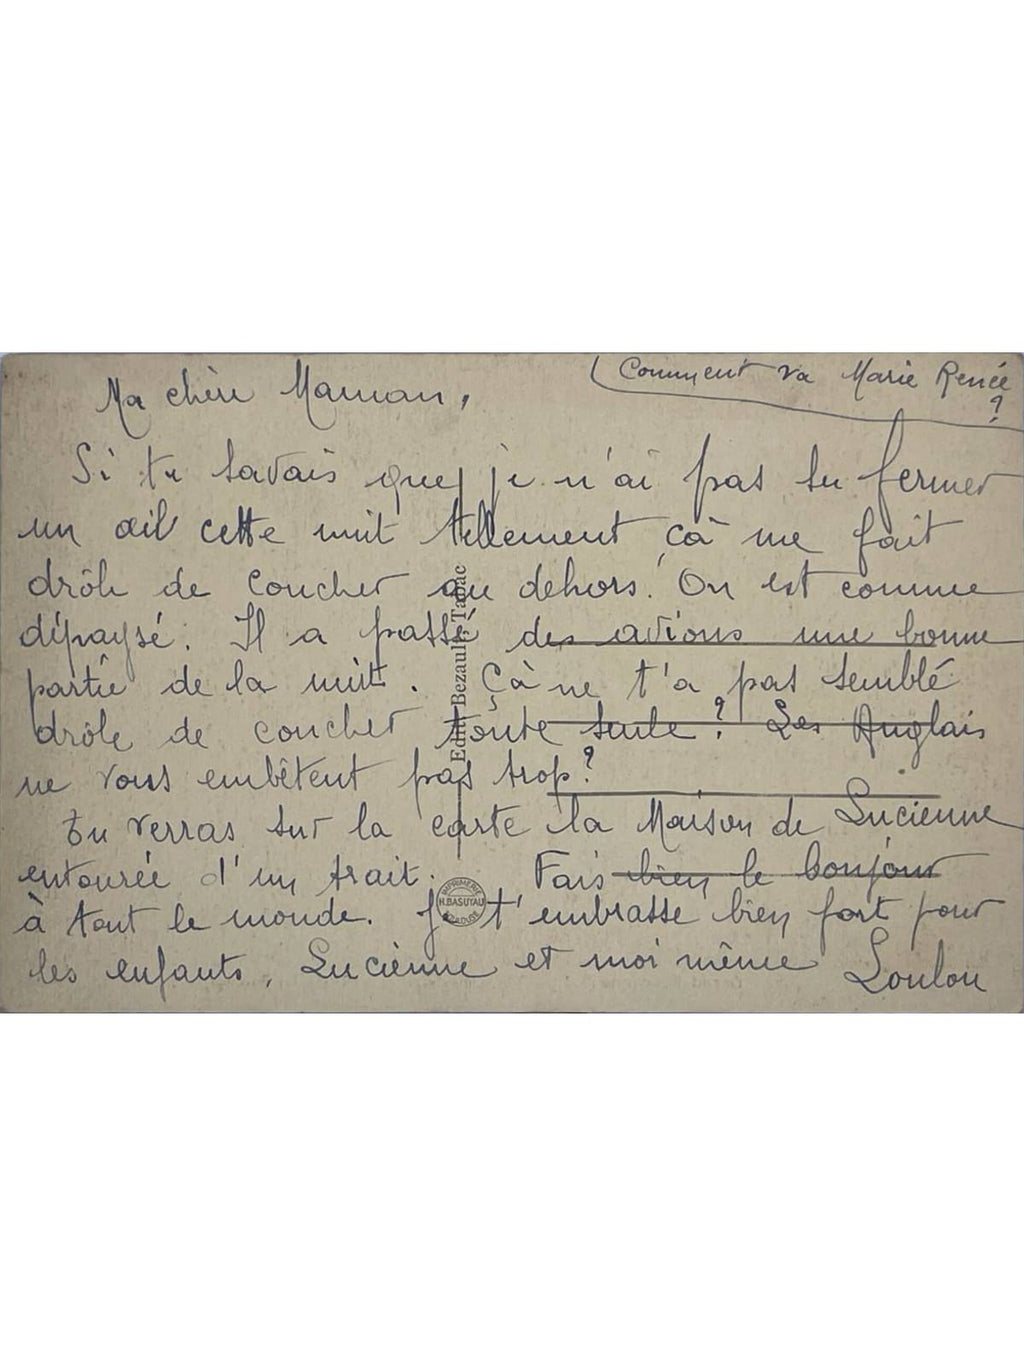 Comment va Marie Renée
?
Ma chère Maman,
Si tu savais que je n'ai pas su fermer
un œil cette nuit tellement çà me fait
drôle de coucher au dehors. On est comme
dépaysé. Il a passé des avions une bonne
partie de la nuit. Çà ne t'a pas semblé
drôle de coucher toute seule ? Les Anglais
ne vous embêtent pas trop ?
Tu verras sur la carte la Maison de Lucienne
entourée d'un trait. Fais bien le bonjour
à tout le monde. Je t'embrasse bien fort pour
les enfants, Lucienne et moi même Loulou
Bezault
IMPRIMERIE
H. BASUYAU